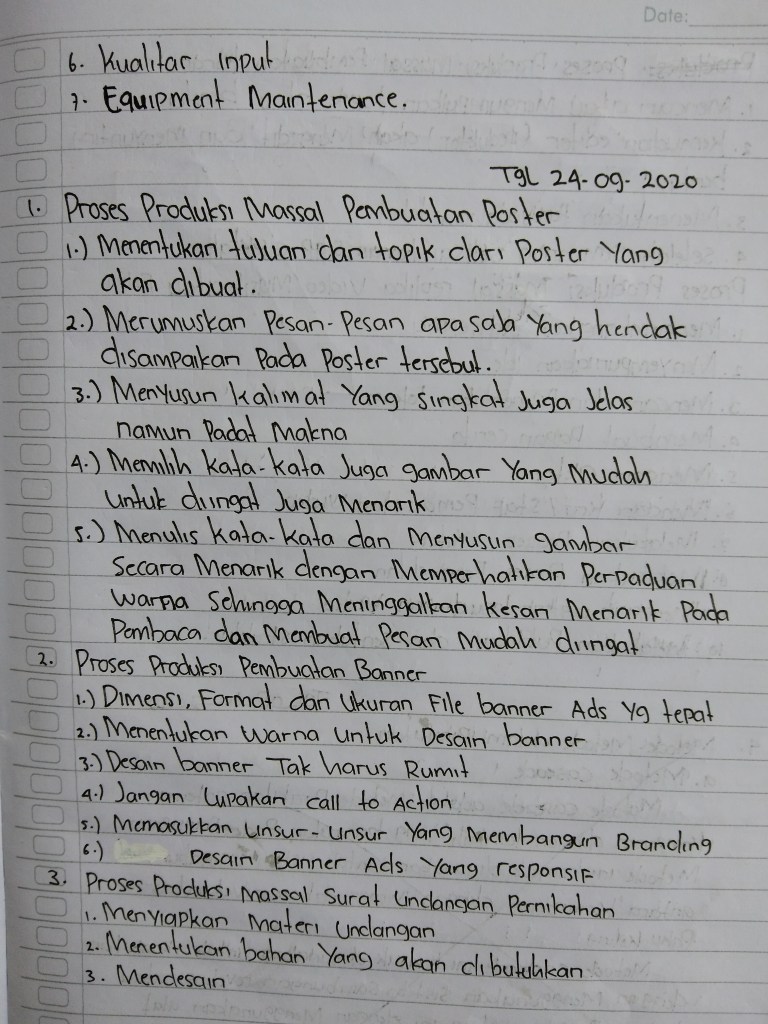 Date:
6. Kualitar Input
7. Equipment Maintenance.
Tgl 24-09-2020
1. Proses Produksi Massal Pembuatan Poster
1.) Menentukan tujuan dan topik dari Poster Yang
akan dibuat.
2.) Merumuskan Pesan-Pesan apa saja Yang hendak
disampaikan Pada Poster tersebut.
3.) Menyusun kalimat Yang singkat Juga Jelas
namun Padat Makna
4.) Memilih kata-kata Juga gambar Yang Mudah
untuk diingat Juga Menarik
5.) Menulis kata-kata dan Menyusun gambar
Secara Menarik dengan Memperhatikan Perpaduan
warna Sehingga Meninggalkan kesan Menarik Pada
Pembaca dan Membuat Pesan Mudah diingat
2. Proses Produksi Pembuatan Banner
1.) Dimensi, Format dan Ukuran File banner Ads Yg tepat
2.) Menentukan Warna Untuk Desain banner
3.) Desain banner Tak harus Rumit
4.) Jangan Lupakan call to Action
5.) Memasukkan Unsur-unsur Yang Membangun Branding
6.) Desain Banner Ads Yang responsif
3. Proses Produksi Massal Surat Undangan Pernikahan
1. Menyiapkan Materi Undangan
2. Menentukan bahan Yang akan dibutuhkan
3. Mendesain